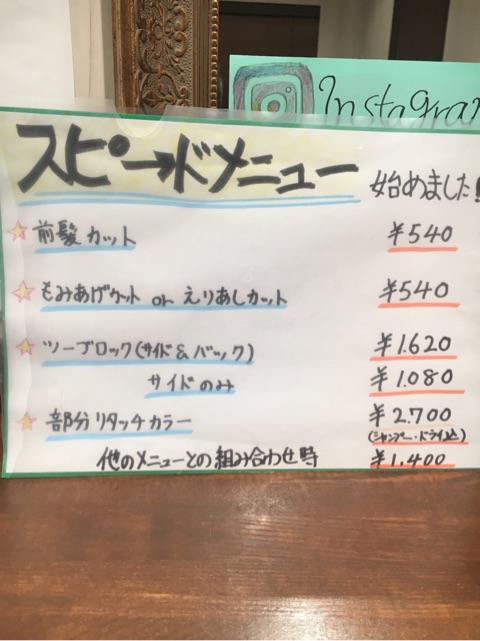 Instagra
スピードメニュー 始めました!
前髪カット ¥540
もみあげカット or えりあしカット ¥540
ツーブロック(サイド&バック) ¥1.620
サイドのみ ¥1.080
部分リタッチカラー ¥2.700
(シャンプー・ドライ込)
他のメニューとの組み合わせ時 ¥1.400